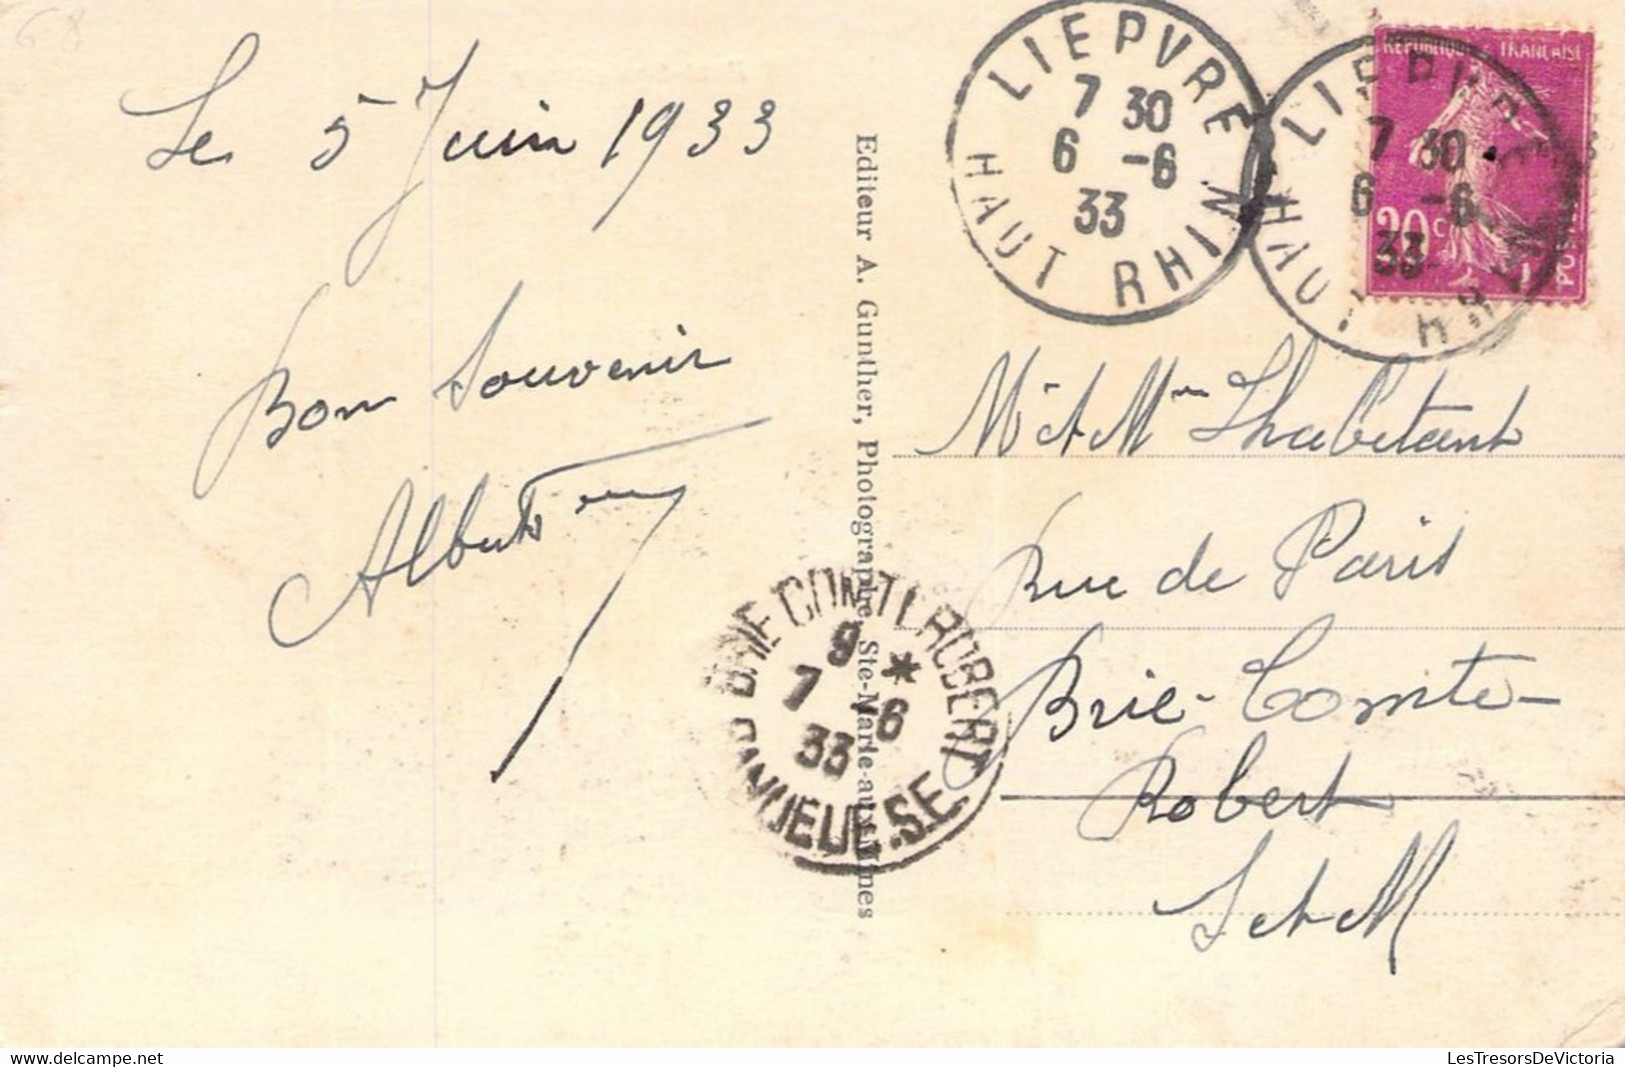 68
Le 5 Juin 1933
Bon Souvenir
Albert
Editeur A. Gunther, Photographe, Ste-Marie-aux-Mines
LIEPVRE
7 30
6 -6
33
HAUT RHIN
LIEPVRE
7 30
6 -6
33
HAUT RHIN
REPUBLIQUE FRANÇAISE
20c
POSTES
Mr et Mme Lhabitant
Rue de Paris
Brie-Comte-
Robert
S et M
BRIE COMTE ROBERT
9 *
7 -6
33
BANLIEUE S.E.
delcampe.net
LesTresorsDeVictoria